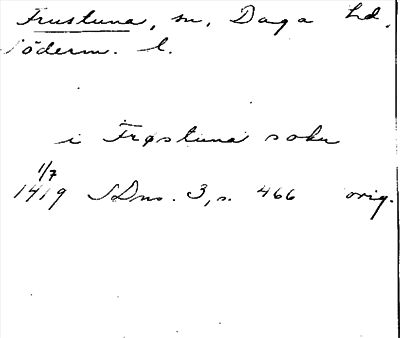 Frustuna, sn, Daga hd,
Söderm. l.
i Frøstuna sokn
1/7
1419 SDns. 3, s. 466 orig.